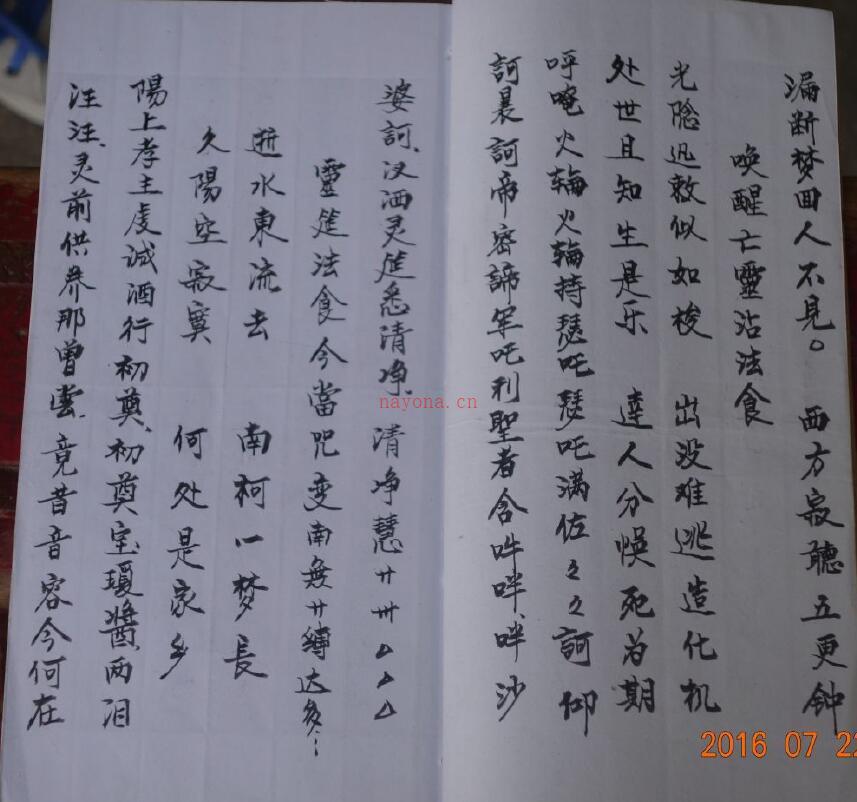 漏断梦回人不見。 西方寂聽五更钟
唤醒亡靈沾法食
光陰迅敕似如梭 出没难逃造化机
处世且知生是乐 達人分悞死为期
呼唵火輪火輪持瑟吒瑟吒满佐々々訶仰
訶曩訶帝密諦军吒利聖者含吽咩、咩沙
婆訶、汶洒灵筵悉清净、清净慧廾卌△△△
靈筵法食今當咒变南無廾縛达多
逝水東流去 南柯一梦長
久陽空寂寞 何处是家乡
陽上孝主虔诚酒行初奠、初奠宝瓊醬、两泪
汪汪、灵前供养那曽尝、竟昔音容今何在
nayona.cn
2016 07 22